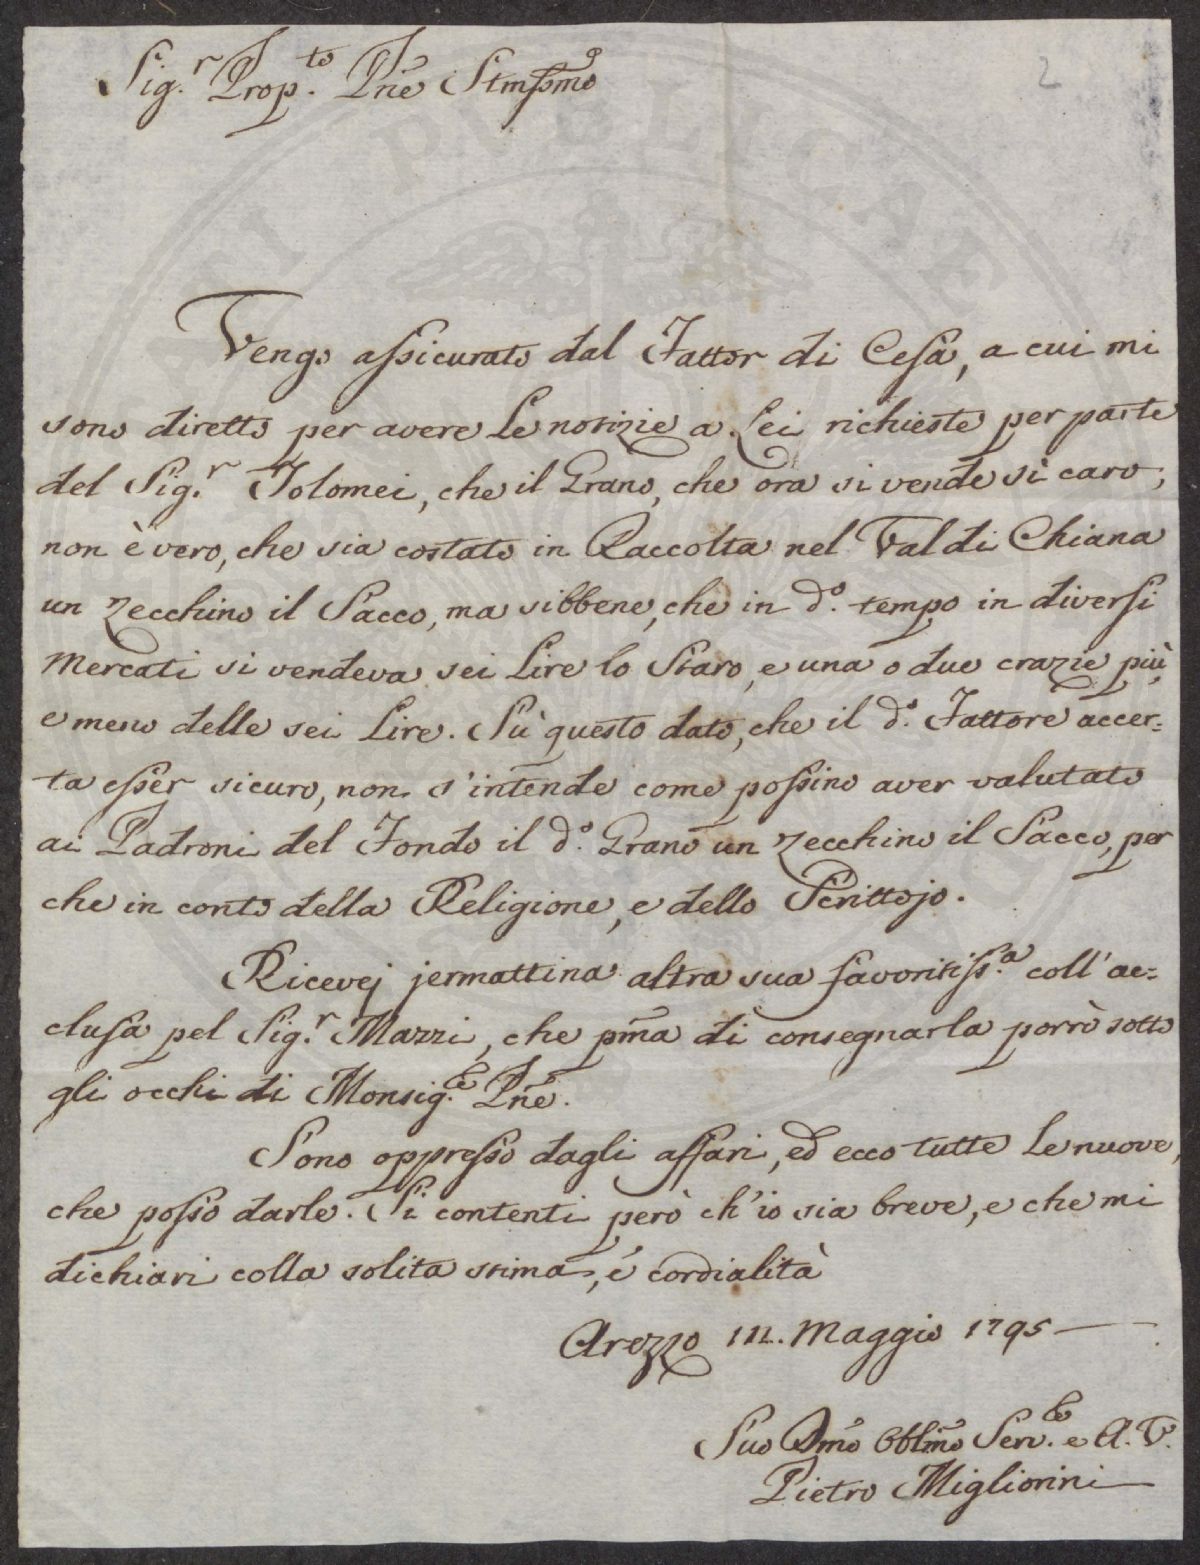 2
Sig.r Prop.to Pne Stmissmo
Vengo assicurato dal Fattor di Cesa, a cui mi
sono diretto per avere le notizie a Lei richieste per parte
del Sig.r Tolomei, che il Grano, che ora si vende sì caro,
non è vero, che sia costato in Raccolta nel Val di Chiana
un zecchino il Sacco, ma sibbene, che in d.o tempo in diversi
Mercati si vendeva sei Lire lo Staro, e una o due crazie più,
e meno delle sei Lire. Sù questo dato, che il d.o Fattore accer=
ta esser sicuro, non s'intende come possino aver valutato
ai Padroni del Fondo il d.o Grano un zecchino il Sacco, per
che in conto della Religione, e dello Scrittojo.
Ricevej jermattina altra sua favoritiss.a coll'ac=
clusa pel Sig.r Mazzi, che pma di consegnarla porrò sotto
gli occhi di Monsig.e Pne.
Sono oppresso dagli affari, ed ecco tutte le nuove,
che posso darle. Si contenti però ch'io sia breve, e che mi
dichiari colla solita stima, e cordialità
Arezzo 12. Maggio 1795
Suo Dmo Obblmo Serv.e e A. V.
Pietro Migliorini
PUBLICAE